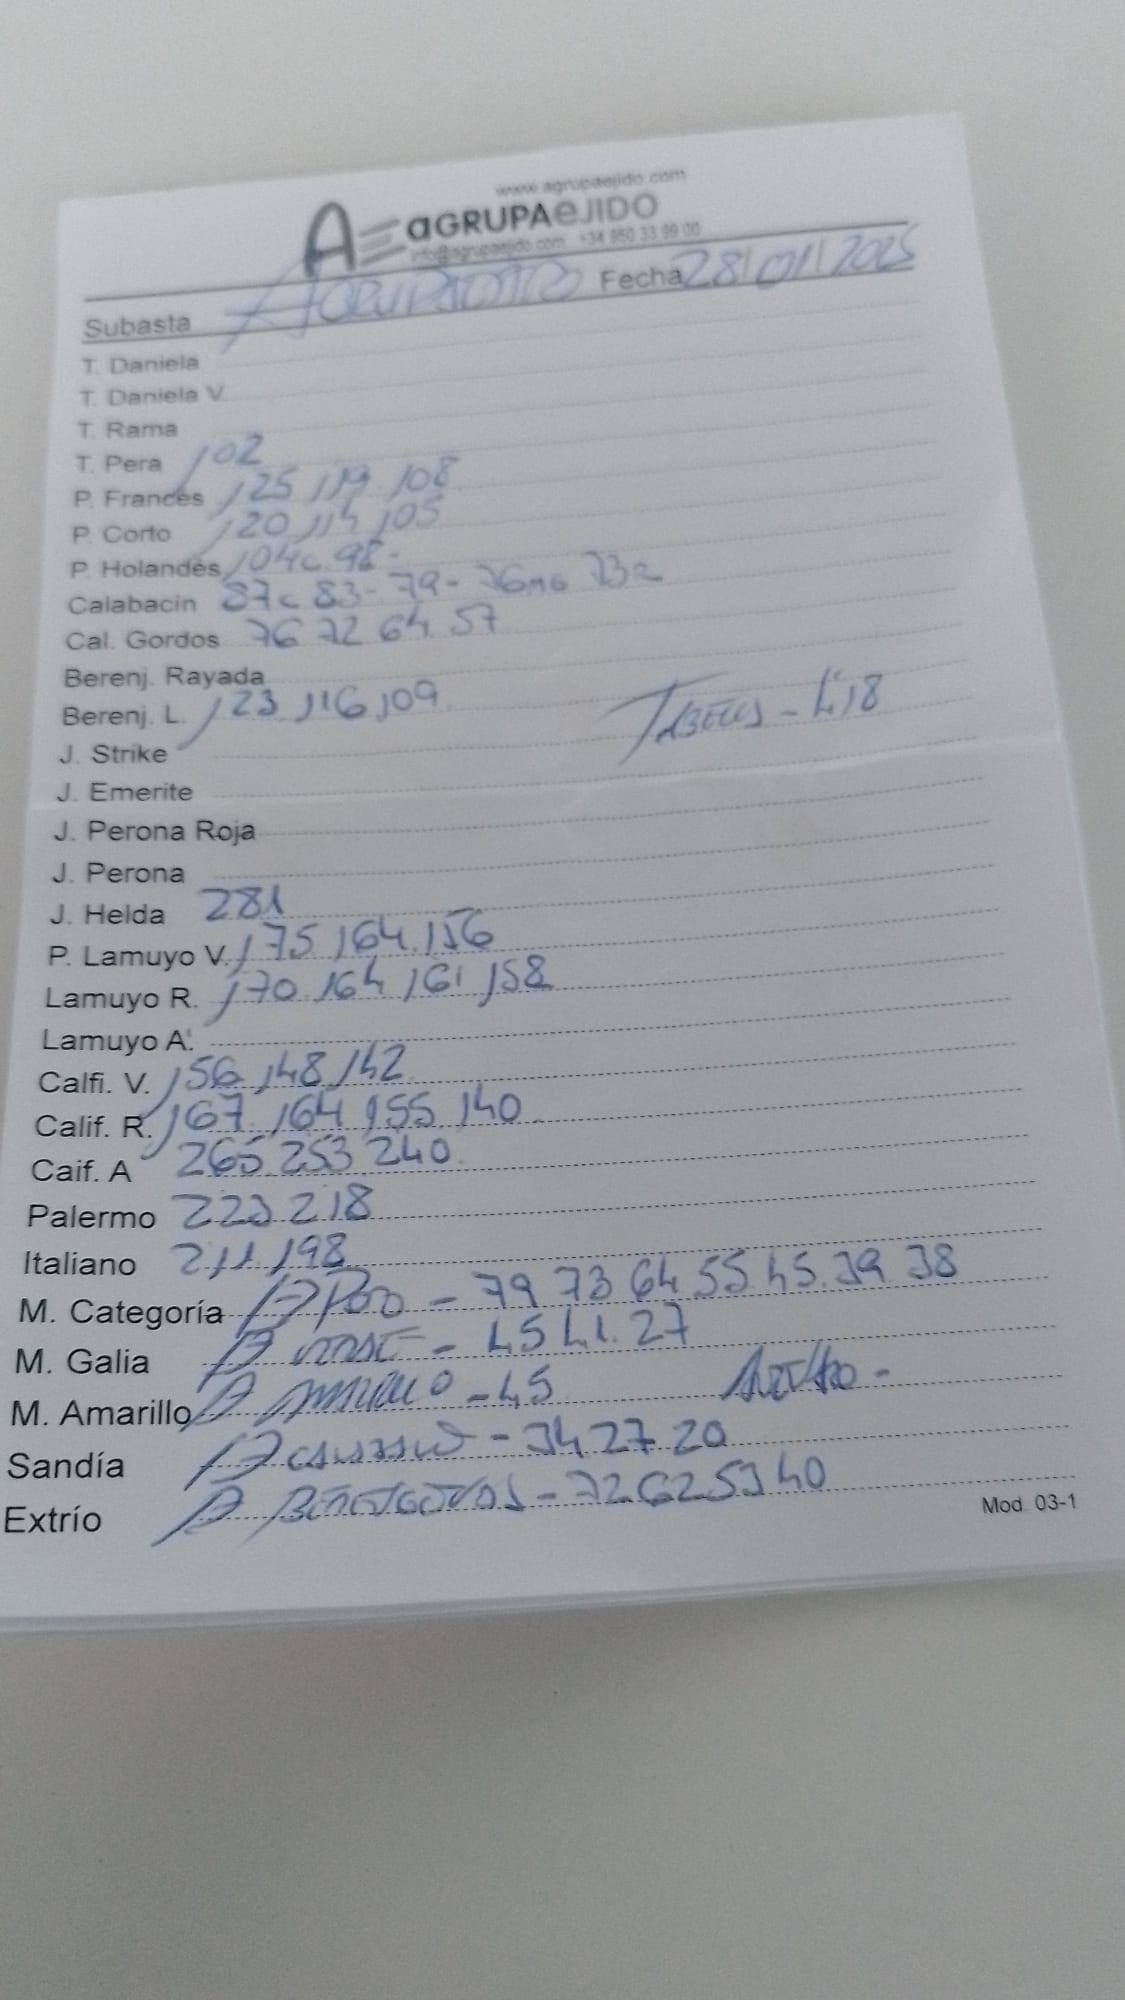 www.agrupaejido.com
AGRUPAEJIDO
info@agrupaejido.com +34 950 33 99 00
Subasta Fecha 28/01/2025
T. Daniela
T. Daniela V.
T. Rama
T. Pera 102
P. Francés 125 119 108
P. Corto 120 114 105
P. Holandés 104c 98-
Calabacin 87c 83- 79- 76 73
Cal. Gordos 76 72 64 57
Berenj. Rayada
Berenj. L. 123 116 109
J. Strike
J. Emerite
J. Perona Roja
J. Perona
J. Helda 281
P. Lamuyo V. 175 164 156
Lamuyo R. 170 164 161 158
Lamuyo A.
Calfi. V. 156 148 142
Calif. R. 167 164 155 140
Caif. A 265 253 240
Palermo 218
Italiano 211 198
M. Categoría - 79 73 64 55 45 39 38
M. Galia - 45 41 27
M. Amarillo - 45
Sandía - 34 27 20
Extrío - 72 62 53 40
Mod. 03-1